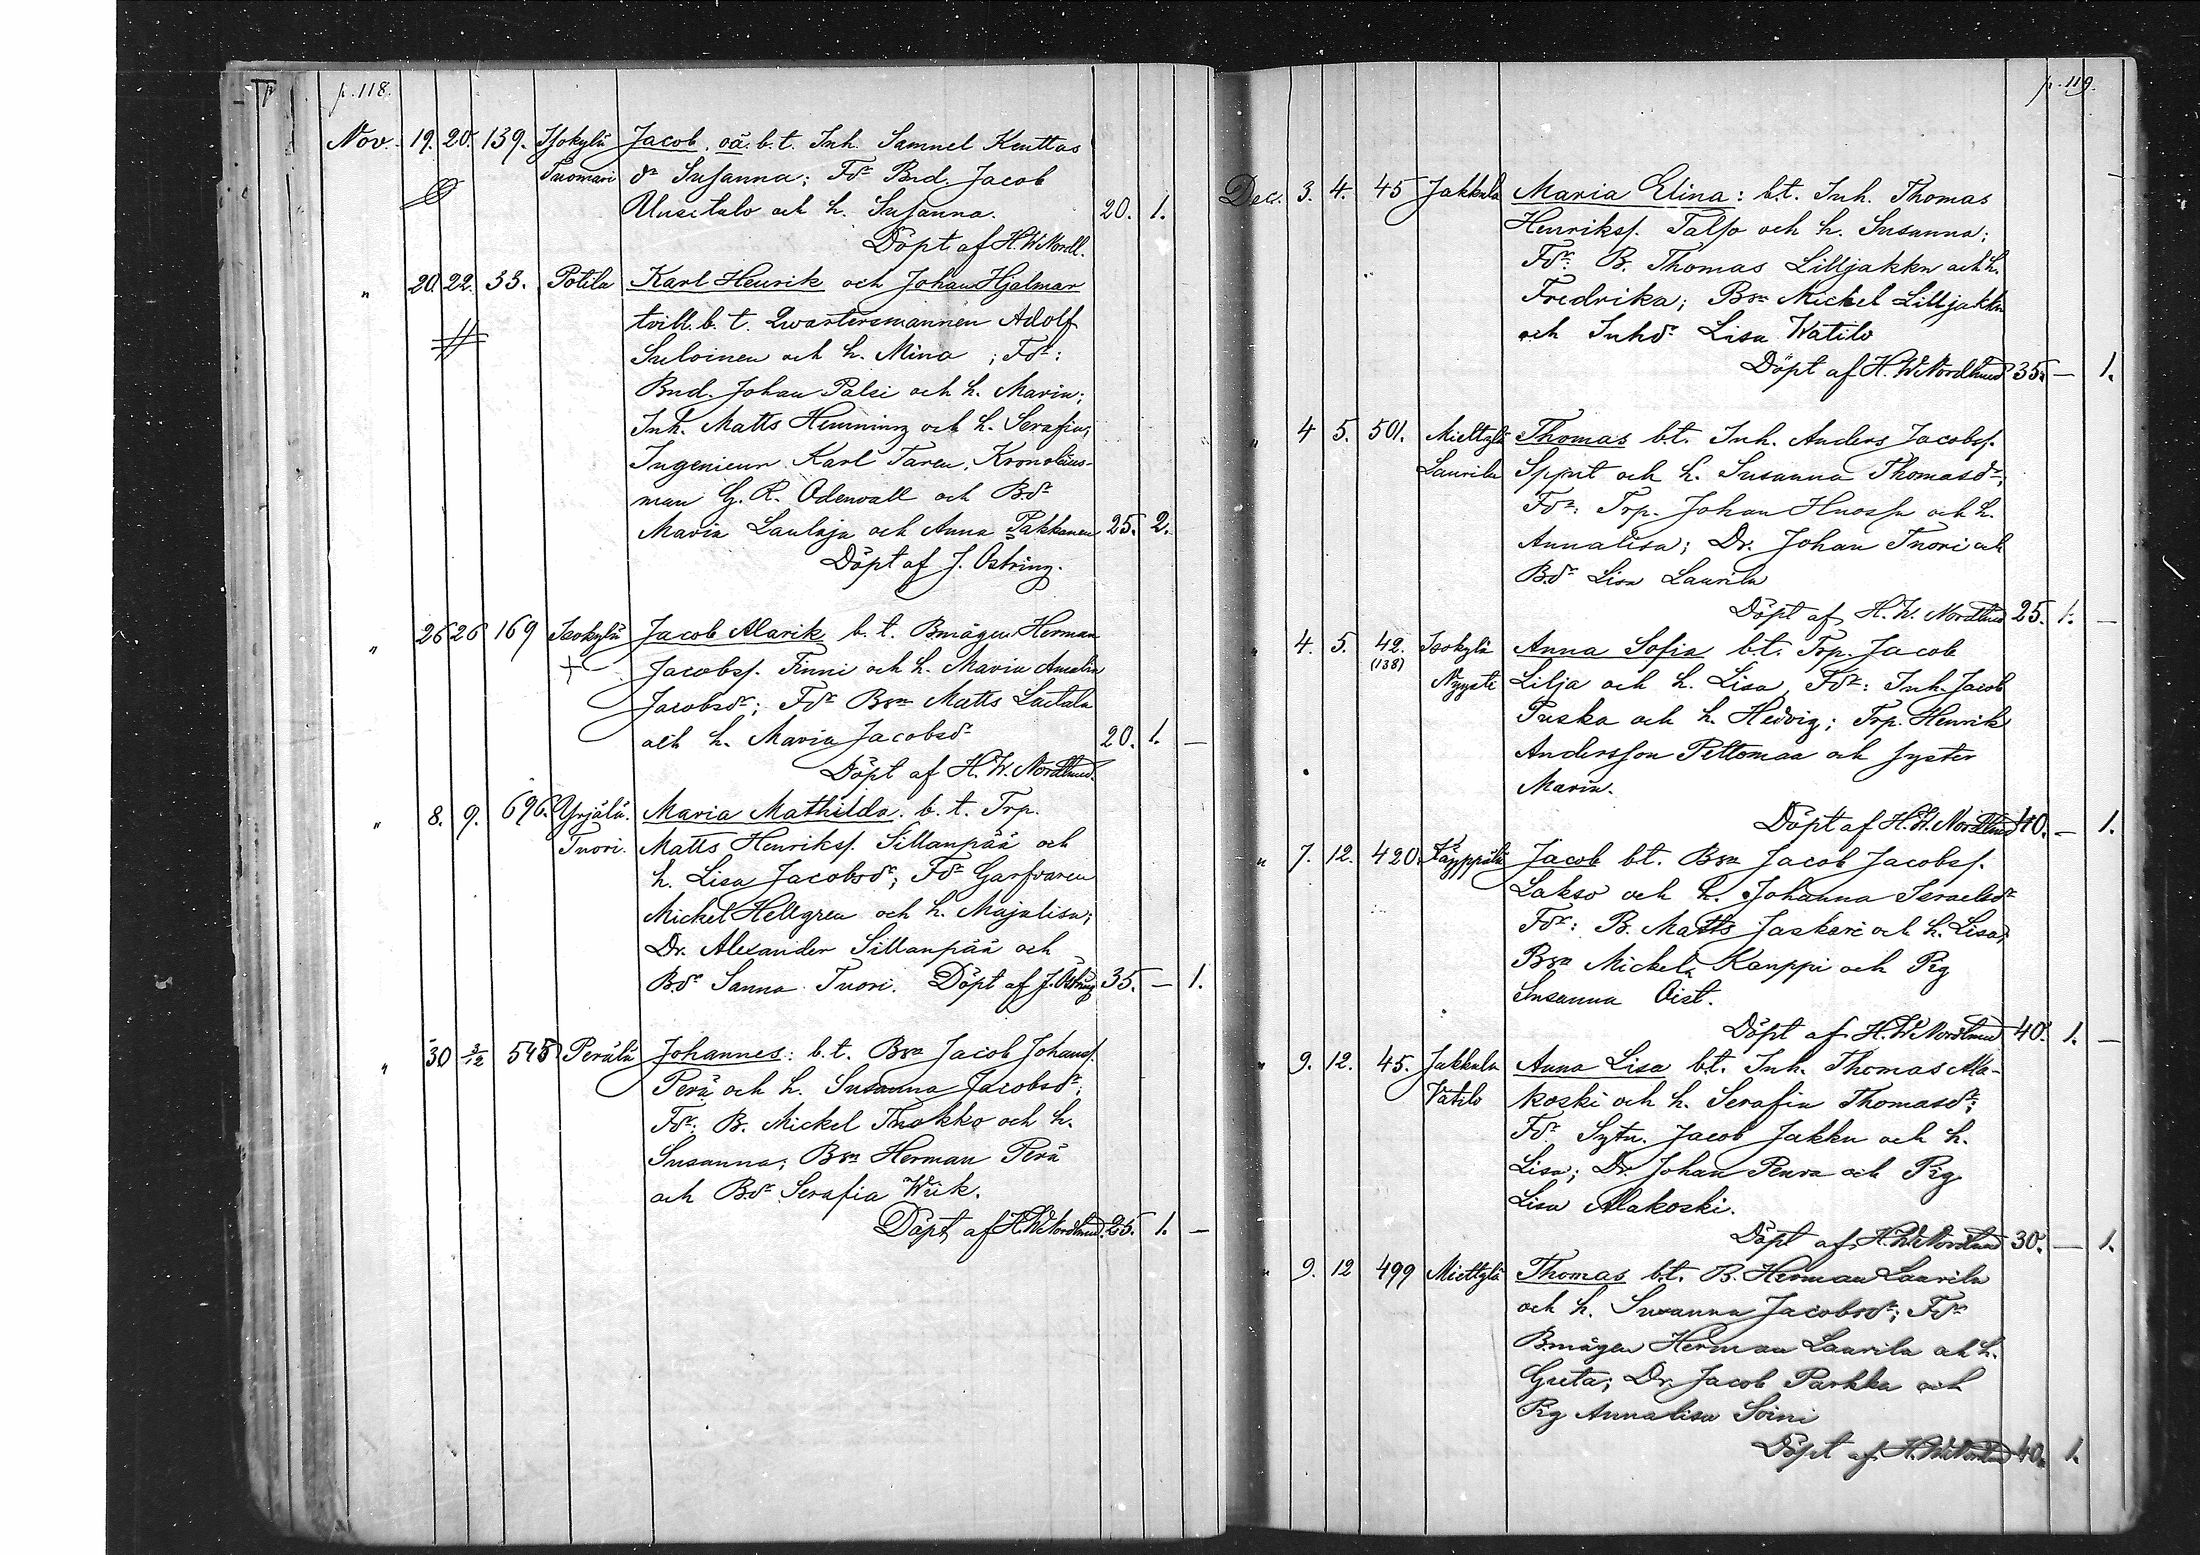 p. 118.
Nov. 19. 20. 139. Isokylä Jacob. oä. b. t. Inh. Samuel Kenttas
Tuomari dr Susanna; Fdr Bnd. Jacob
Uusitalo och h. Susanna. 20. 1.
Döpt af H. W. Nordl.
" 20. 22. 33. Potila Karl Henrik och Johan Hjalmar
tvill. b. t. Qwartersmannen Adolf
Suloinen och h. Mina ; Fdr:
Bnd. Johan Palsi och h. Maria;
Inh. Matts Hemming och h. Serafia;
Ingenieur Karl Taren, Kronoläns-
man G. R. Odenvall och Bdr
Maria Laulaja och Anna Pakkanen 25. 2.
Döpt af J. Östring.
" 26 26 169 Isokylä Jacob Alarik b. t. Bmågen Herman
Jacobsf. Finni och h. Maria Amalia
Jacobsdr; Fdr Bsn Matts Laitala
och h. Maria Jacobsdr 20. 1. —
Döpt af H. W. Nordlund.
" 8. 9. 696. Yrjälä. Maria Mathilda. b. t. Trp.
Tuori. Matts Henriksf. Sillanpää och
h. Lisa Jacobsdr; Fdr Garfvaren
Mickel Hellgren och h. Majalisa;
Dr. Alexander Sillanpää och
Bdr Sanna Tuori. Döpt af J. Östring 35. — 1.
" 30 3/12 545 Perälä Johannes: b. t. Bsn Jacob Johansf.
Perä och h. Susanna Jacobsdr;
Fdr: B. Mickel Tuokko och h.
Susanna; Bsn Herman Perä
och Bdr Serafia Wiik.
Döpt af H. W. Nordlund. 25. 1. —
p. 119.
Dec. 3. 4. 45 Jakkula Maria Elina: b.t. Inh. Thomas
Henriksf. Talso och h. Susanna;
Fdr. B. Thomas Lilljakku och h.
Fredrika; Bsn Mickel Lilljakku
och Inhdr Lisa Watilo
Döpt af H. W. Nordlund 35. — 1.
" 4 5. 501. Miettylä Thomas bt. Inh. Anders Jacobsf.
Laurila och h. Susanna Thomasdr;
Fdr: Trp. Johan Huossa och h.
Annalisa; Dr. Johan Tuori och
Bdr Lisa Laurila
Döpt af H. W. Nordlund 25. 1. —
" 4. 5. 42. Isokylä Anna Sofia bt. Trp. Jacob
(138) Nyysti Lilja och h. Lisa, Fdr: Inh. Jacob
Puska och h. Hedvig; Trp. Henrik
Andersson Peltomaa och syster
Maria.
Döpt af H. W. Nordlund 40. — 1.
" 7. 12. 420. Käyppälä Jacob bt. Bsn Jacob Jacobsf.
Lakso och h. Johanna Israelsdr
Fdr: B. Matts Jaskari och h. Lisa;
Bsn Mickel Kauppi och Pig
Susanna Oist.
Döpt af H. W. Nordlund 40. 1. —
" 9. 12. 45. Jakkula Anna Lisa bt. Inh. Thomas Ala-
Vatilo koski och h. Serafia Thomasdr;
Fdr Sytn. Jacob Jakku och h.
Lisa; Dr. Johan Penra och Pig
Lisa Alakoski.
Döpt af H. W. Nordlund 30. — 1.
" 9. 12 499 Miettylä Thomas bt. B. Herman Laurila
och h. Susanna Jacobsdr; Fdr
Bmågen Herman Laurila och h.
Greta; Dr. Jacob Parkka och
Pig Annalisa Soini
Döpt af H. W. Nordlund 40. 1.